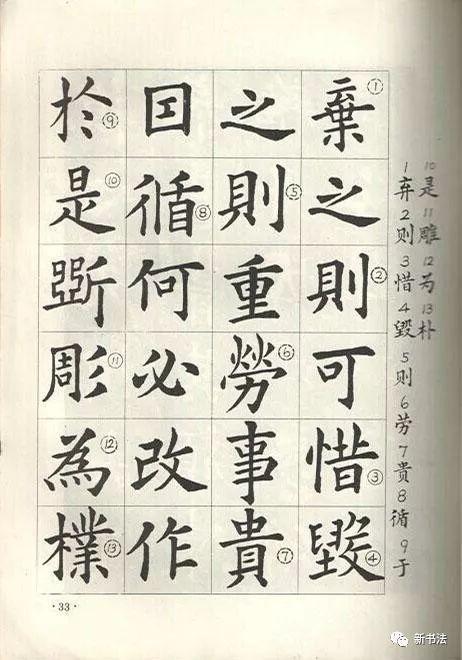 棄①之則②可惜③毀④
之則⑤重勞⑥事貴⑦
囙循⑧何必改作
於⑨是⑩斲彫⑪為⑫樸⑬
1弃2则3惜4毁5则6劳7贵8循9于
10是11雕12为13朴
·33·
新书法